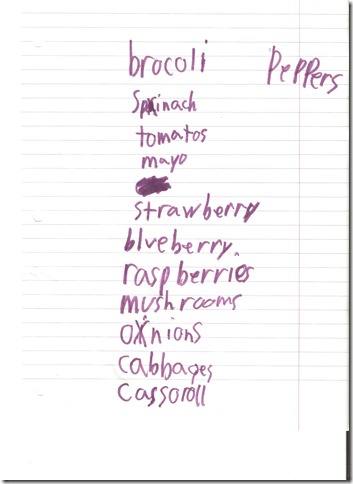 brocoli
Peppers
Spinach
tomatos
mayo
strawberry
blueberry
raspberries
mushrooms
onions
cabbages
cassoroll